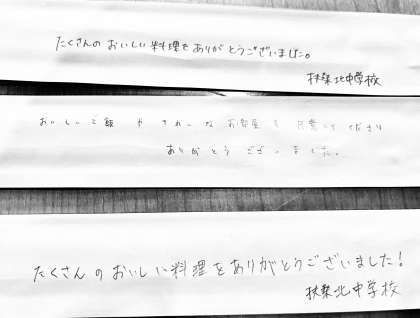 たくさんのおいしい料理をありがとうございました。
扶桑北中学校
おいしいご飯やきれいなお部屋を用意して下さり
ありがとうございました。
たくさんのおいしい料理をありがとうございました!
扶桑北中学校